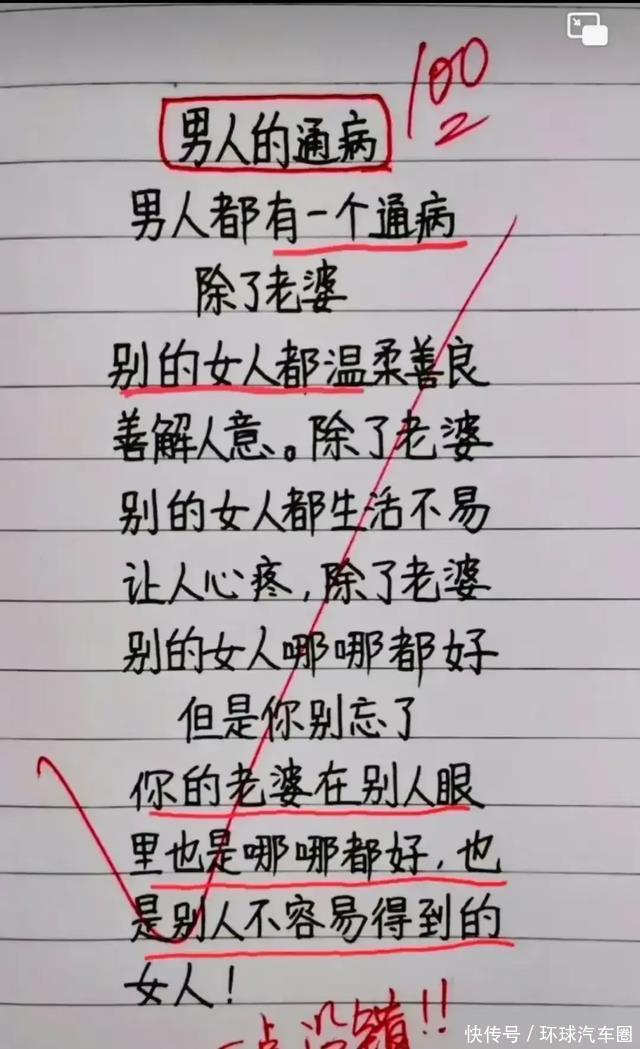 100
男人的通病
男人都有一个通病
除了老婆
别的女人都温柔善良
善解人意。除了老婆
别的女人都生活不易
让人心疼,除了老婆
别的女人哪哪都好
但是你别忘了
你的老婆在别人眼
里也是哪哪都好,也
是别人不容易得到的
女人!
一点没错!!
快传号/环球汽车圈